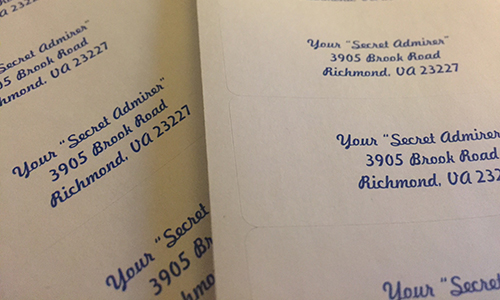 Secret Admirer"
05 Brook Road
chmond, VA 23227
Your "Secret Admirer"
3905 Brook Road
Richmond, VA 23227
Your "Secret
3905 Broo
Richmo
Your "Secret Admirer"
3905 Brook Road
Richmond, VA 23227
Your "Secret Admirer
3905 Brook Road
Richmond, VA 232
Your "Secret